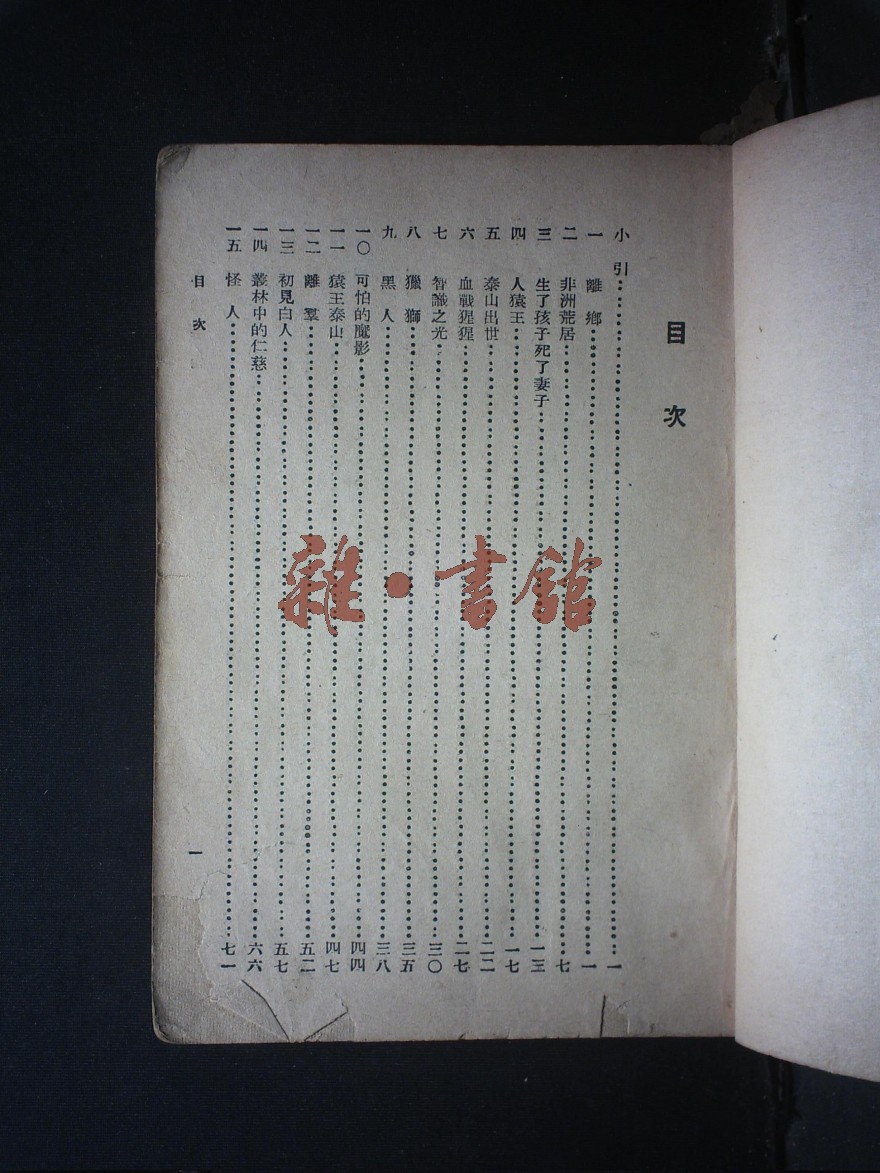 目次
小引……一
一 離鄉……一
二 非洲荒居……七
三 生了孩子死了妻子……一三
四 人猿王……一七
五 泰山出世……二二
六 血戰猩猩……二七
七 智識之光……三〇
八 獵獅……三五
九 黑人……三八
一〇 可怕的魔影……四四
一一 猿王泰山……四七
一二 離羣……五二
一三 初見白人……五七
一四 叢林中的仁慈……六六
一五 怪人……七一
目次
一
雜·書館